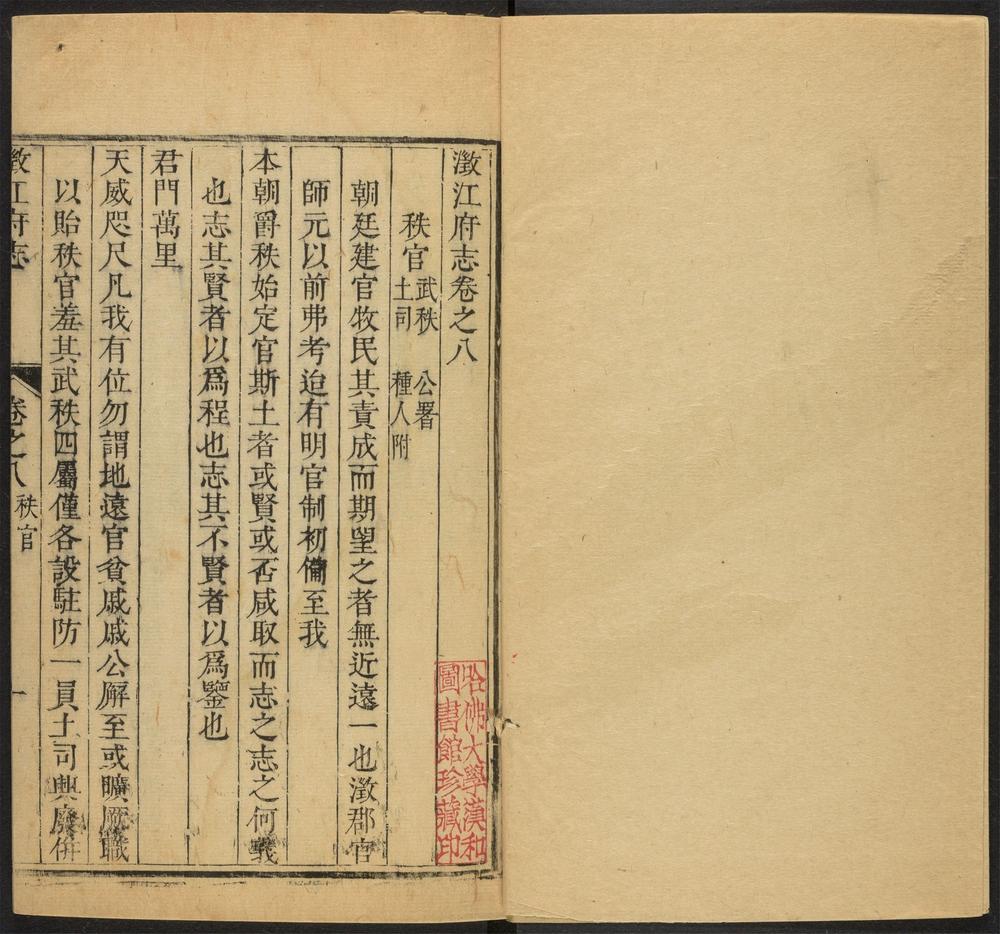 澂江府志卷之八
秩官 武秩 公署
土司 種人附
朝廷建官牧民其責成而期望之者無近遠一也澂郡官
師元以前弗考迨有明官制初備至我
本朝爵秩始定官斯土者或賢或否咸取而志之志之何義
也志其賢者以爲程也志其不賢者以爲鑒也
君門萬里
天威咫尺凡我有位勿謂地遠官貧戚戚公廨至或曠厥職
以貽秩官羞其武秩四屬僅各設駐防一員土司興廢併
澂江府志 卷之八 秩官 一
哈佛大學漢和
圖書館珍藏印